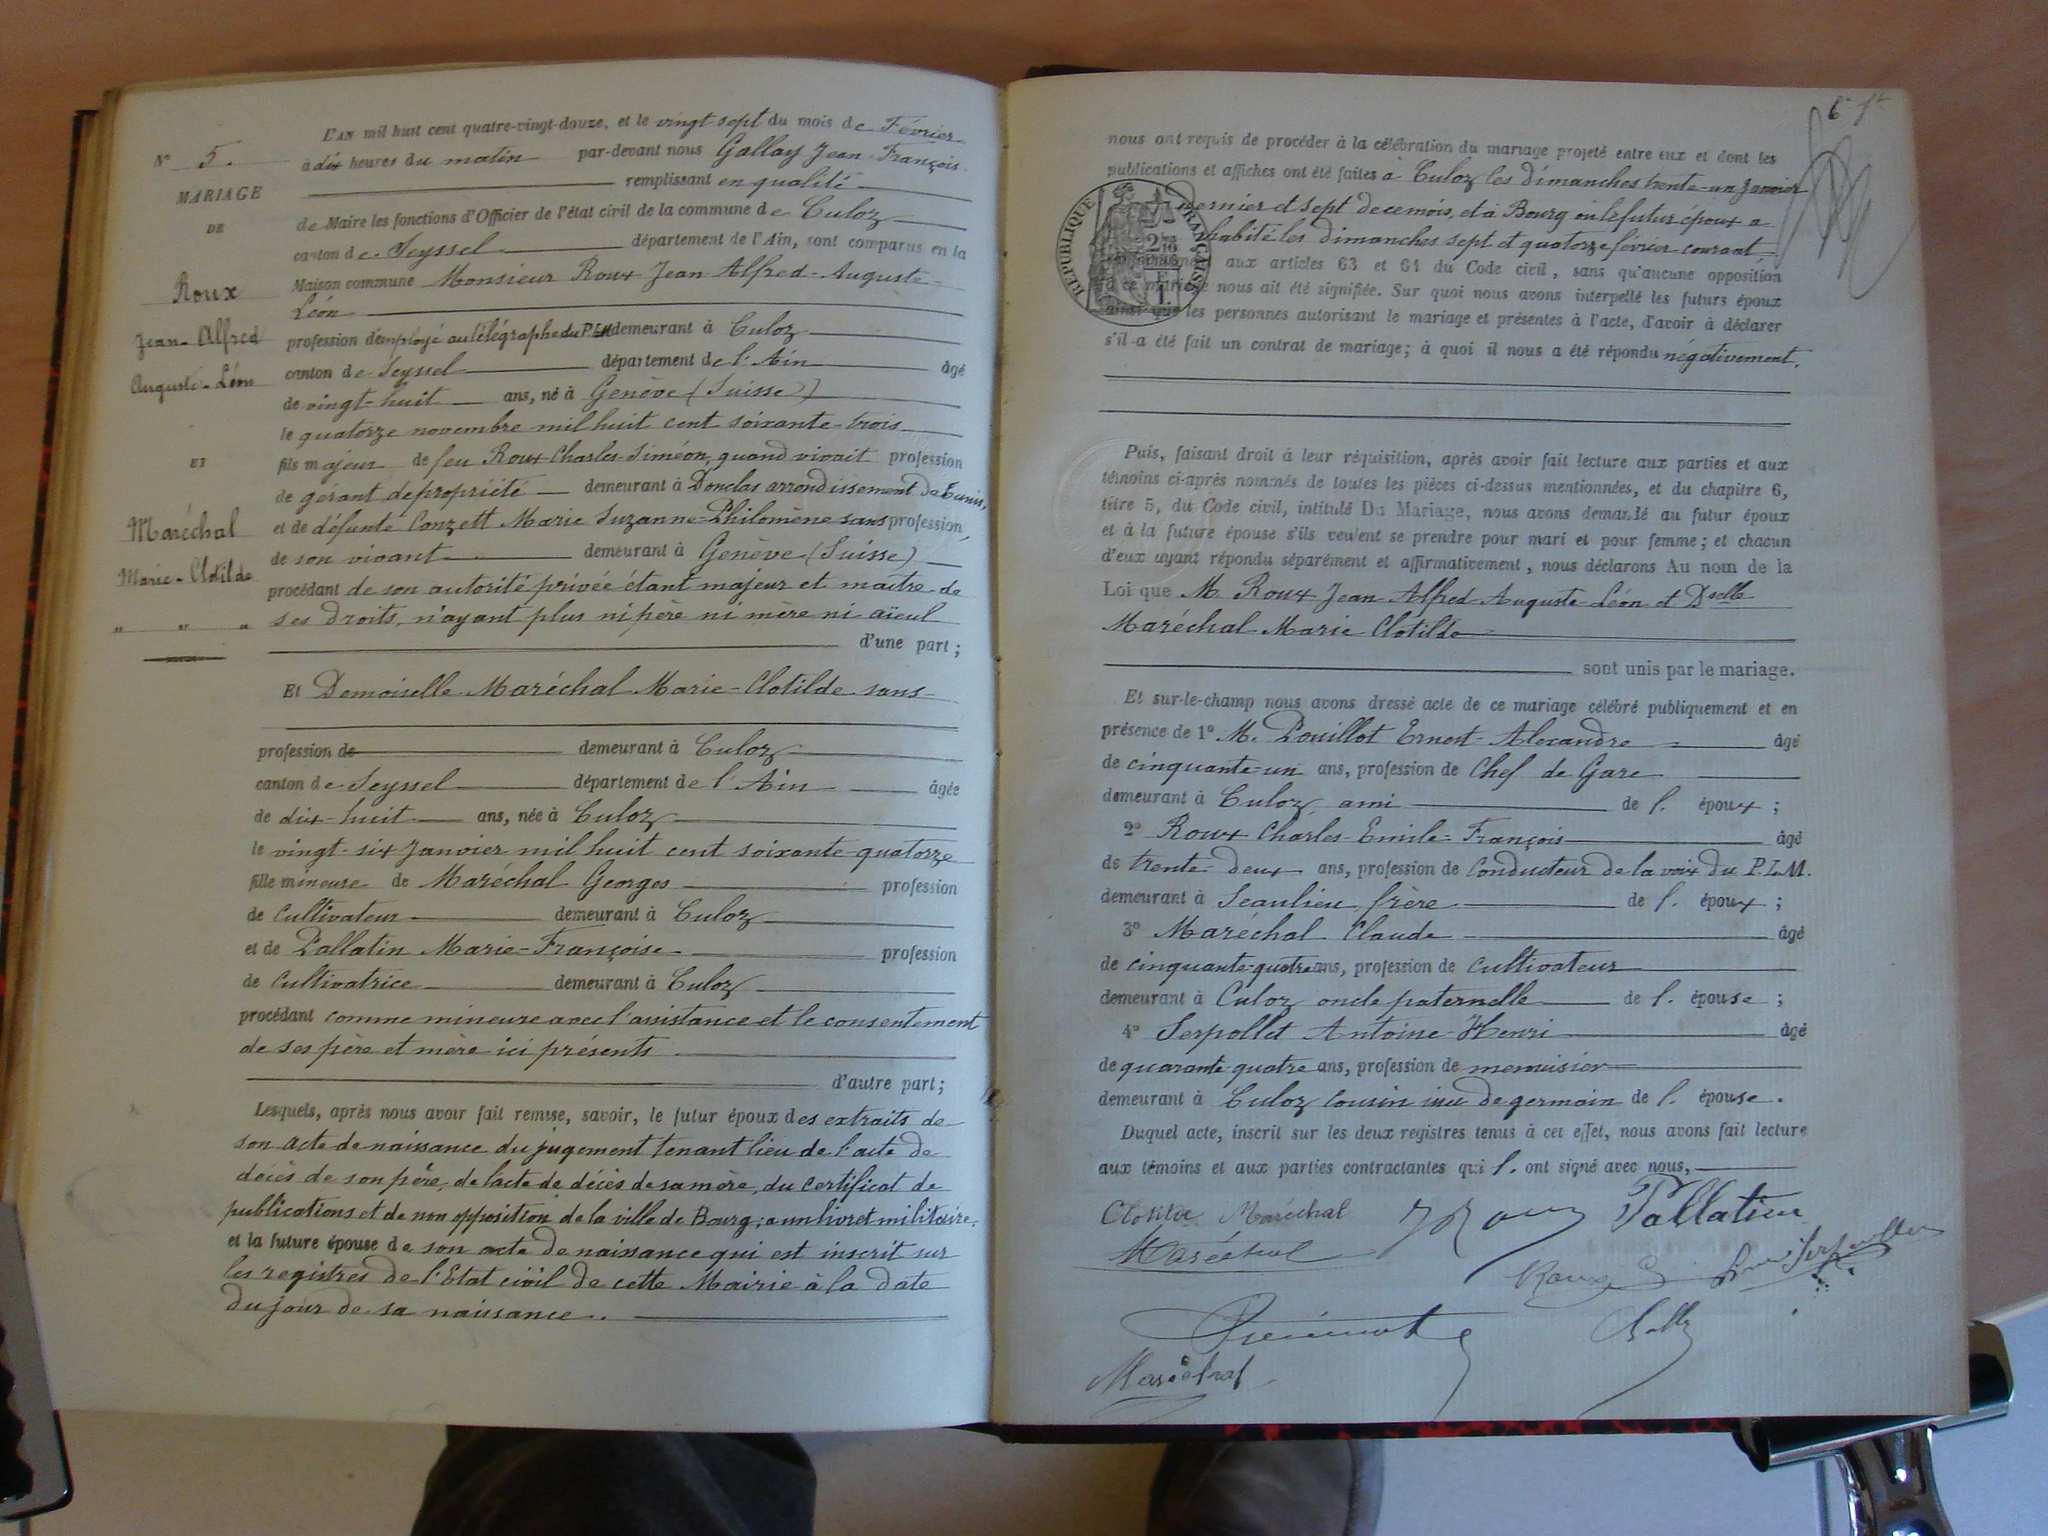 L'AN mil huit cent quatre-vingt-douze, et le vingt sept du mois de Février
N° 5.
à dix heures du matin par-devant nous Gallay Jean-François
MARIAGE
remplissant en qualité
DE
de Maire les fonctions d'Officier de l'état civil de la commune de Culoz
canton de Seyssel département de l'Ain, sont comparus en la
Roux
Maison commune Monsieur Roux Jean Alfred-Auguste-
Léon
Jean-Alfred
profession d'employé au télégraphe du PLM demeurant à Culoz
Auguste-Léon
canton de Seyssel département de l'Ain âgé
de vingt-huit ans, né à Genève (Suisse)
le quatorze novembre mil huit cent soixante-trois
ET
fils majeur de feu Roux Charles-Siméon, quand vivait profession
de gérant de propriété demeurant à Donclas arrondissement de Tunis,
Maréchal
et de défunte Conzett Marie Suzanne-Philomène sans profession,
de son vivant demeurant à Genève (Suisse)
Marie-Clotilde
procédant de son autorité privée étant majeur et maitre de
" " "
ses droits, n'ayant plus ni père ni mère ni aïeul
d'une part ;
Et Demoiselle Maréchal Marie-Clotilde sans
profession de demeurant à Culoz
canton de Seyssel département de l'Ain âgée
de dix-huit ans, née à Culoz
le vingt-six Janvier mil huit cent soixante-quatorze
fille mineure de Maréchal Georges profession
de Cultivateur demeurant à Culoz
et de Pallatin Marie-Françoise profession
de Cultivatrice demeurant à Culoz
procédant comme mineure avec l'assistance et le consentement
de ses père et mère ici présents
d'autre part ;
Lesquels, après nous avoir fait remise, savoir, le futur époux des extraits de
son acte de naissance du jugement tenant lieu de l'acte de
décès de son père, de l'acte de décès de sa mère, du certificat de
publications et de non opposition de la ville de Bourg ; a un livret militaire,
et la future épouse de son acte de naissance qui est inscrit sur
les registres de l'Etat civil de cette Mairie à la date
du jour de sa naissance.
6e ft
nous ont requis de procéder à la célébration du mariage projeté entre eux et dont les
publications et affiches ont été faites à Culoz les dimanches trente-un Janvier
dernier et sept de ce mois, et à Bourg où le futur époux a
habité les dimanches sept et quatorze février courant,
aux articles 63 et 64 du Code civil, sans qu'aucune opposition
à ce mariage nous ait été signifiée. Sur quoi nous avons interpellé les futurs époux
ainsi que les personnes autorisant le mariage et présentes à l'acte, d'avoir à déclarer
s'il a été fait un contrat de mariage ; à quoi il nous a été répondu négativement.
RÉPUBLIQUE FRANÇAISE
Puis, faisant droit à leur réquisition, après avoir fait lecture aux parties et aux
témoins ci-après nommés de toutes les pièces ci-dessus mentionnées, et du chapitre 6,
titre 5, du Code civil, intitulé Du Mariage, nous avons demandé au futur époux
et à la future épouse s'ils veulent se prendre pour mari et pour femme ; et chacun
d'eux ayant répondu séparément et affirmativement, nous déclarons Au nom de la
Loi que M. Roux Jean Alfred Auguste Léon et Dselle
Maréchal Marie Clotilde
sont unis par le mariage.
Et sur-le-champ nous avons dressé acte de ce mariage célébré publiquement et en
présence de 1° M. Pouillot Ernest-Alexandre âgé
de cinquante-un ans, profession de Chef de Gare
demeurant à Culoz ami de l. époux ;
2° Roux Charles-Emile-François âgé
de trente-deux ans, profession de Conducteur de la voix du P.L.M.
demeurant à Seaulieu frère de l. époux ;
3° Maréchal Claude âgé
de cinquante-quatre ans, profession de Cultivateur
demeurant à Culoz oncle paternelle de l. épouse ;
4° Serpollet Antoine-Henri âgé
de quarante quatre ans, profession de menuisier
demeurant à Culoz cousin issu de germain de l. épouse.
Duquel acte, inscrit sur les deux registres tenus à cet effet, nous avons fait lecture
aux témoins et aux parties contractantes qui l. ont signé avec nous,
Clotilde Maréchal Roux Pallatin
Maréchal Roux
Maréchal